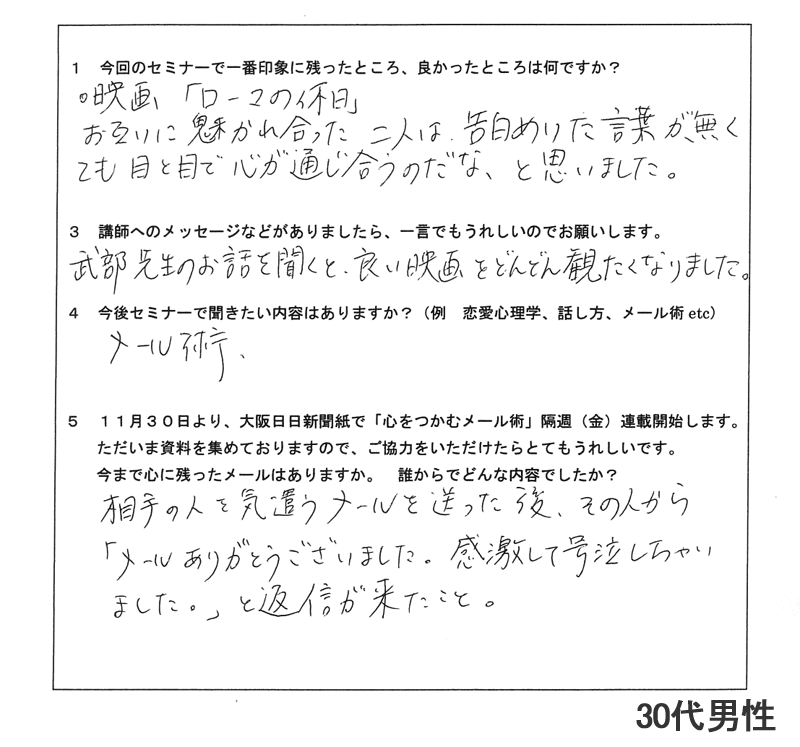 １ 今回のセミナーで一番印象に残ったところ、良かったところは何ですか？
○映画「ローマの休日」
お互いに魅かれ合った二人は、告白めいた言葉が、無く
ても目と目で心が通じ合うのだな、と思いました。
３ 講師へのメッセージなどがありましたら、一言でもうれしいのでお願いします。
武部先生のお話を聞くと、良い映画をどんどん観たくなりました。
４ 今後セミナーで聞きたい内容はありますか？（例 恋愛心理学、話し方、メール術 etc）
メール術、
５ １１月３０日より、大阪日日新聞紙で「心をつかむメール術」隔週（金）連載開始します。
ただいま資料を集めておりますので、ご協力をいただけたらとてもうれしいです。
今まで心に残ったメールはありますか。 誰からでどんな内容でしたか？
相手の人を気遣うメールを送った後、その人から
「メールありがとうございました。感激して号泣しちゃい
ました。」と返信が来たこと。
30代男性